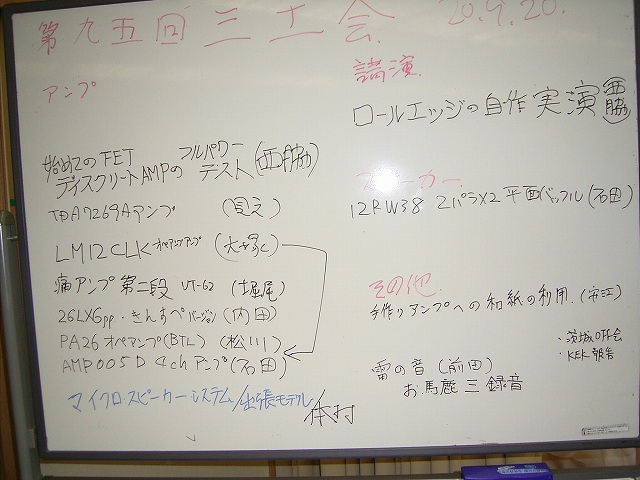 第九五回 三土会. 20.9.20.
アンプ
始めてのFET フルパワー
ディスクリートAMPの テスト (西脇)
TDA7269Aアンプ (見え)
LM12CLK オペアンプアンプ (大塚)
痛アンプ 第二段 UT-62 (堀尾)
26LX6pp・きんすぺバージョン (内田)
PA26 オペアンプ(BTL) (松川)
AMP005D 4chアンプ (石田)
マイクロ・スピーカーシステム/出張モデル
講演.
ロールエッジの自作 実演 (西脇)
スピーカー.
12RW38 2パラX2 平面バッフル (石田)
その他.
手作りアンプへの和紙の利用. (安江)
・茨城OFF会
・KEK報告
雷の音 (前田)
お馬鹿三録音